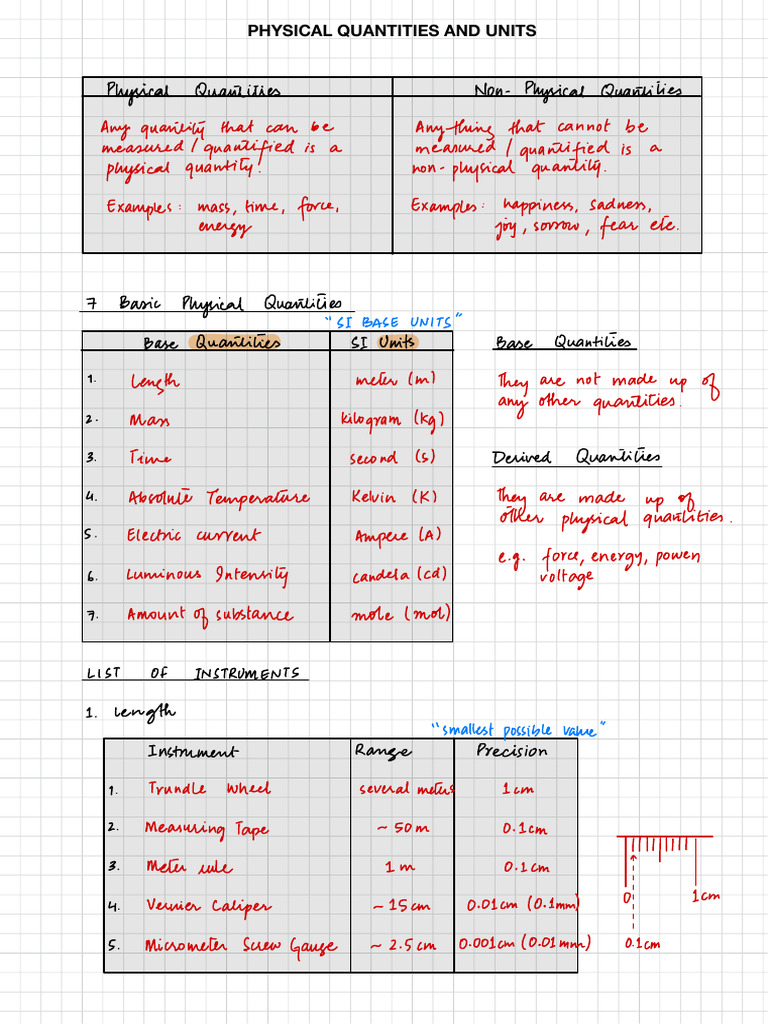 PHYSICAL QUANTITIES AND UNITS
Physical Quantities
Non-Physical Quantities
Any quantity that can be
measured/quantified is a
physical quantity.
Examples: mass, time, force,
energy
Anything that cannot be
measured/quantified is a
non-physical quantity.
Examples: happiness, sadness,
joy, sorrow, fear etc.
7 Basic Physical Quantities
"SI BASE UNITS"
Base Quantities SI Units
1. Length meter (m)
2. Mass kilogram (kg)
3. Time second (s)
4. Absolute Temperature Kelvin (K)
5. Electric current Ampere (A)
6. Luminous Intensity candela (cd)
7. Amount of substance mole (mol)
Base Quantities
They are not made up of
any other quantities.
Derived Quantities
They are made up of
other physical quantities.
e.g. force, energy, power
voltage
LIST OF INSTRUMENTS
1. Length
"smallest possible value"
Instrument Range Precision
1. Trundle Wheel several meters 1cm
2. Measuring Tape ~ 50m 0.1cm
3. Meter rule 1m 0.1cm
4. Vernier Caliper ~ 15cm 0.01cm (0.1mm)
5. Micrometer Screw Gauge ~ 2.5cm 0.001cm (0.01mm)
0 1cm
0.1cm